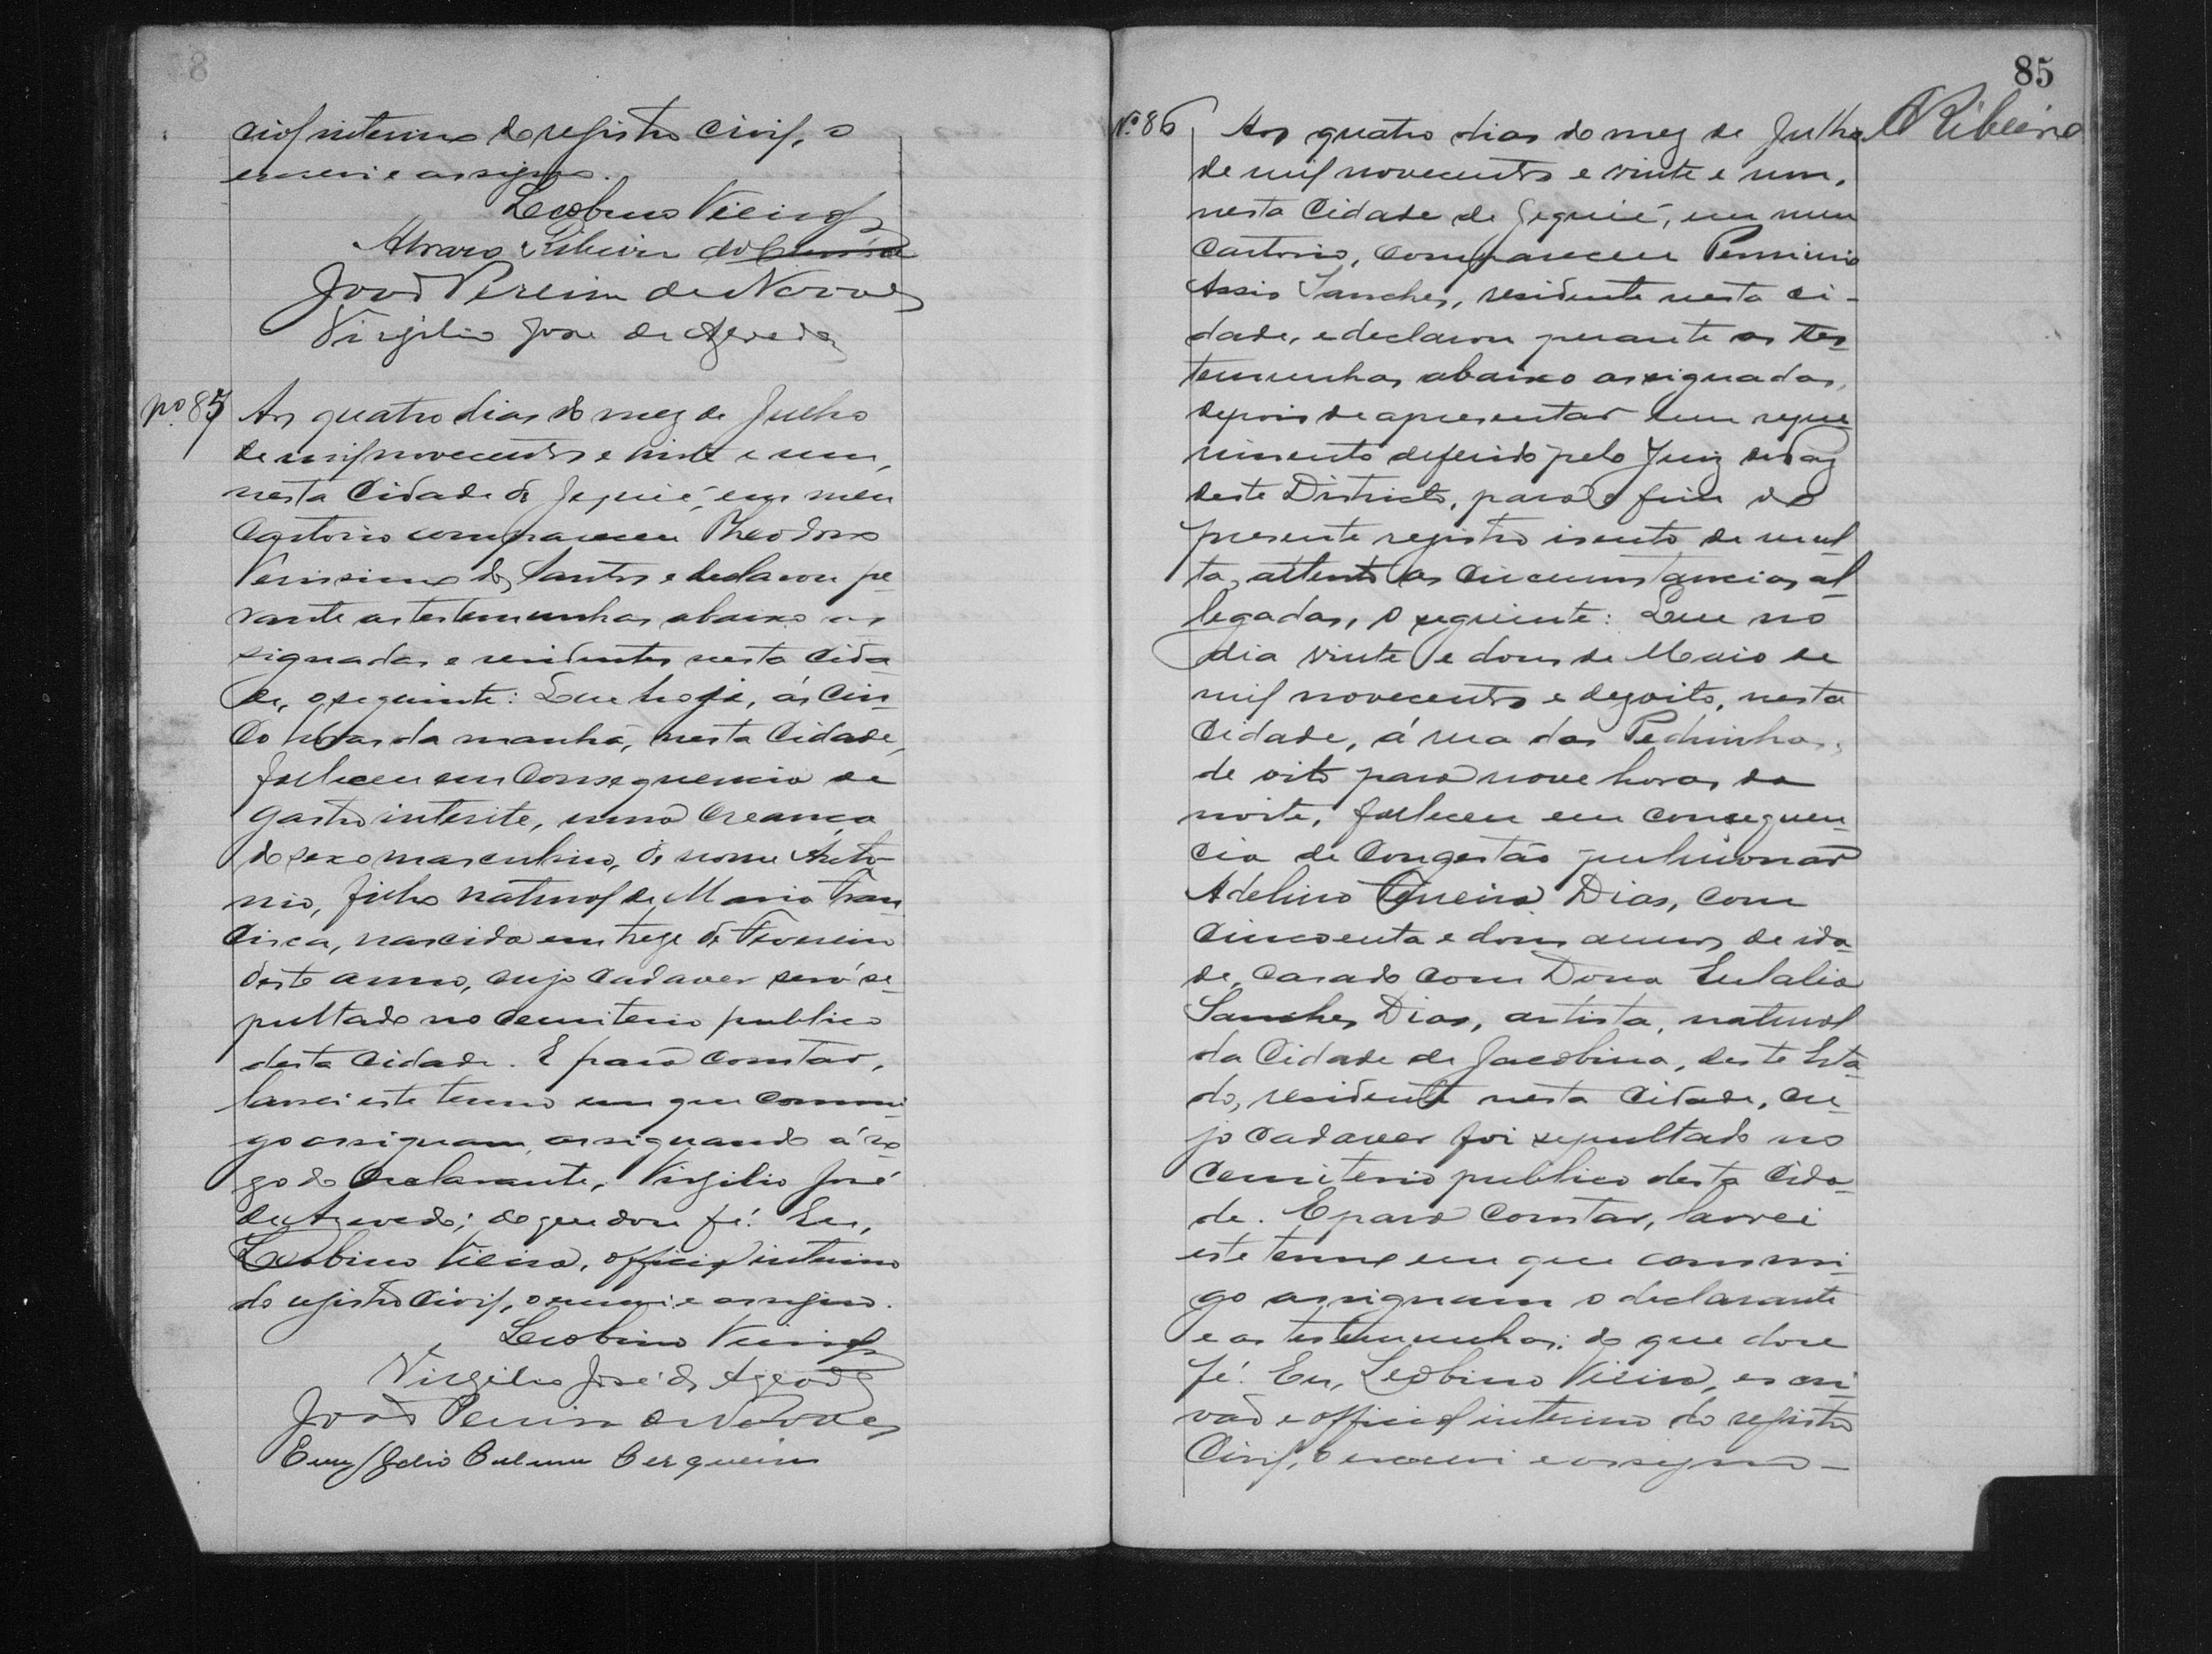 cial interino do registro civil, o
escrevi e assigno.
Leobino Vieira
Alvaro Ribeiro
João Pereira de Novaes
Virgilio José de Azevedo
Nº 85
Aos quatro dias do mez de Julho
de mil novecentos e vinte e um,
nesta Cidade de Jequié, em meu
Cartorio compareceu Theodoro
Verissimo dos Santos e declarou pe-
rante as testemunhas abaixo as
signadas e residentes nesta Cida
de, o seguinte: Que hoje, ás cin-
co horas da manhã, nesta Cidade,
falleceu em consequencia de
gastro interite, uma creança
do sexo masculino, de nome Anto-
nio, filho natural de Maria Fran
cisca, nascido em treze de Fevereiro
deste anno, cujo cadaver será se-
pultado no Cemiterio publico
desta Cidade. E para constar,
lavrei este termo em que commi-
go assignam, assignando á ro-
go do declarante, Virgilio José
de Azevedo; do que dou fé. Eu,
Leobino Vieira, official interino
do registro Civil, o escrevi e assigno.
Leobino Vieira
Virgilio José de Azevedo
João Pereira de Novaes
Cerqueira
85
Nº 86
Aos quatro dias do mez de Julho
ARibeiro
de mil novecentos e vinte e um,
nesta Cidade de Jequié, em meu
Cartorio, compareceu
Assis Sanches, residente nesta ci-
dade, e declarou perante as tes-
temunhas abaixo assignadas,
depois de apresentar um reque-
rimento deferido pelo Juiz de Paz
deste Districto, para o fim do
presente registro isento de mul-
ta, attento as circumstancias al-
legadas, o seguinte: Que no
dia vinte e dous de Maio de
mil novecentos e dezoito, nesta
Cidade, á rua das Pedrinhas,
de oito para nove horas da
noite, falleceu em consequen-
cia de congestão pulmonar
Adelino Dias, com
cincoenta e dous annos de ida-
de, casado com Dona Eulalia
Sanches Dias, artista, natural
da Cidade de Jacobina, deste Esta-
do, residente nesta Cidade, cu-
jo cadaver foi sepultado no
Cemiterio publico desta Cida-
de. E para constar, lavrei
este termo em que commi-
go assignam o declarante
e as testemunhas: do que dou
fé. Eu, Leobino Vieira, escri-
vão e official interino do registro
Civil, o escrevi e assigno –